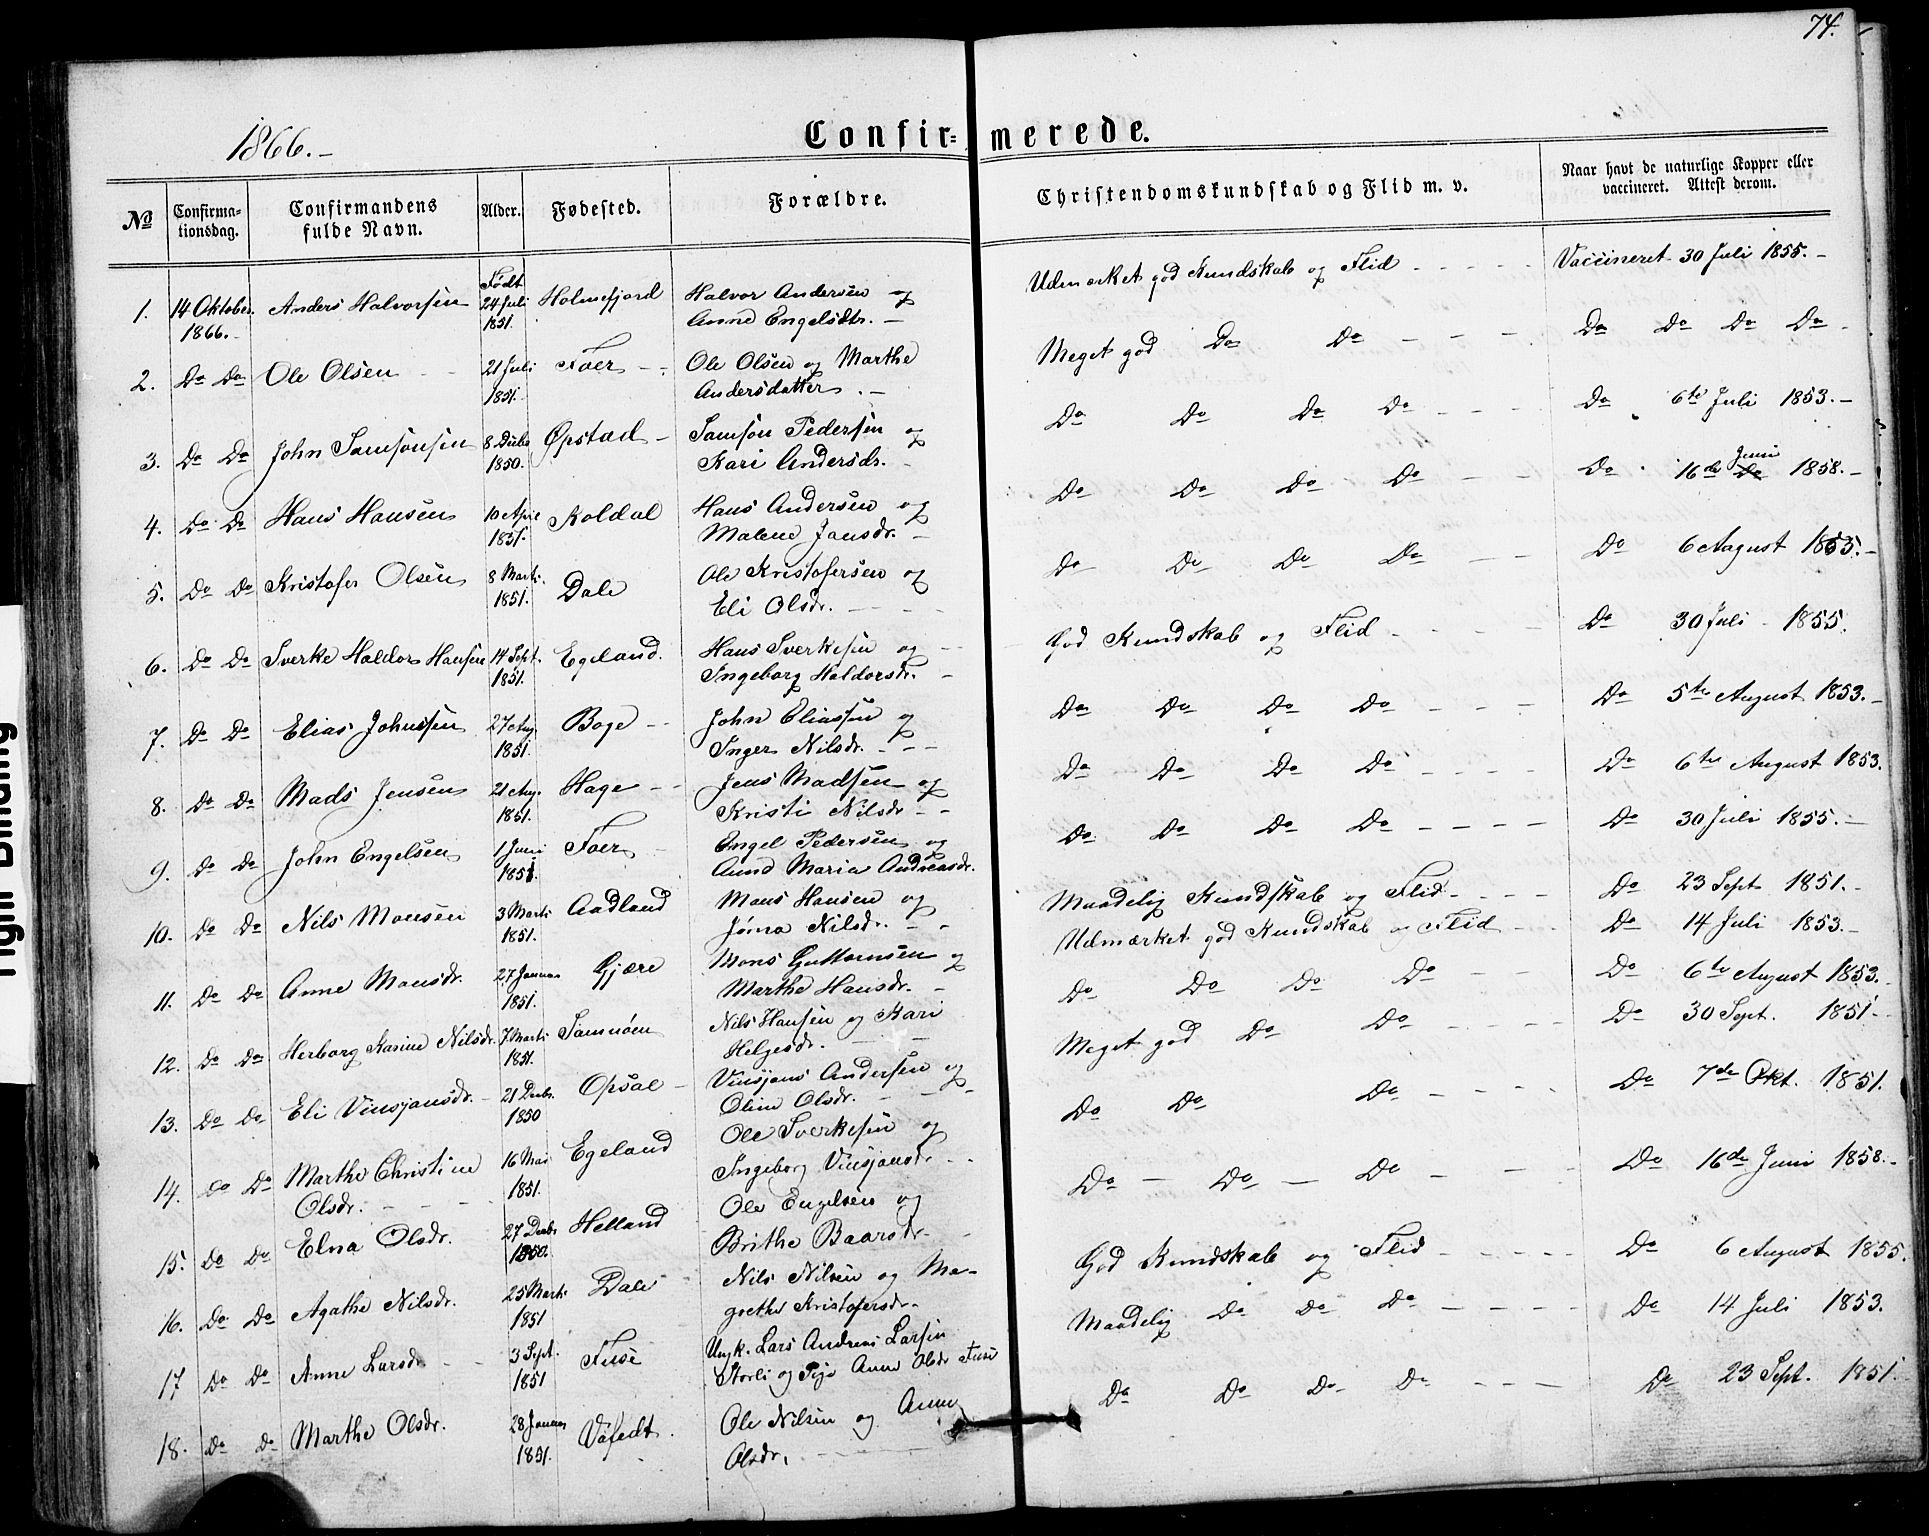 74.
1866.-
Confir= merede.
No
Confirma-
tionsdag.
Confirmandens
fulde Navn.
Alder.
Fødested.
Forældre.
Christendomskundskab og Flid m. v.
Naar havt de naturlige Kopper eller
vaccineret. Attest derom.
1. 14 Oktober 1866. Anders Halvorsen Født 24 Juli 1851. Holmefjord Halvor Andersen og Anne Engelsdtr. - Udmærket god Kundskab og Flid - - - - Vaccineret 30 Juli 1855. -
2. Do Do Ole Olsen - - 21 Juli 1851. Foer - - Ole Olsen og Marthe Andersdatter. - Meget god Do Do - - - Do Do Do Do -
3. Do Do John Samsonsen 8 Decbr 1850. Øpstad - Samson Pedersen og Kari Andersdr. - Do Do Do Do - - - Do 6te Juli 1853. -
4. Do Do Hans Hansen 10 April 1851. Koldal Hans Andersen og Malene Jansdr. - Do Do Do Do - - Do 16de Juni 1858. -
5. Do Do Kristofer Olsen 8 Marts 1851. Dale Ole Kristofersen og Eli Olsdr. - - - Do Do Do Do - - Do 6 August 1855. -
6. Do Do Sverke Haldor Hansen 14 Sept. 1851. Egeland. Hans Sverkesen og Ingeborg Haldorsdr. - God Kundskab og Flid - - - - Do 30 Juli - 1855.
7. Do Do Elias Johnssen 27 Aug. 1851. Boge - - John Eliassen og Inger Nilsdr. - - - Do Do Do Do - - - Do 5te August 1853. -
8. Do Do Mads Jensen 21 Aug. 1851. Hage - - Jens Madsen og Kristi Nilsdr - - Do Do Do Do - - - - Do 6te August 1853.
9. Do Do John Engelsen 1 Juni 1851. Foer - Engel Pedersen og Anna Maria Andreasdr. Do Do Do Do - - - - Do 30 Juli 1855. -
10. Do Do Nils Monsen 3 Marts 1851. Aadland Mons Hansen og Jørna Nilsdr. - - Maadelig Kundskab og Flid - - - - Do 23 Sept 1851. -
11. Do Do Anne Monsdr. 27 Januar 1851. Gjære Mons Guttormsen og Marthe Hansdr. - Udmærket god Kundskab og Flid - - - Do 14 Juli 1853. -
12. Do Do Herborg Karine Nilsdr. 7 Marts 1851. Samnøen Nils Hansen og Kari Helgesdr. - - Do Do Do Do - - Do 6te August 1853.
13. Do Do Eli Vinsjansdr. - 21 Decbr. 1850 Opsal - Vinsjans Andersen og Oline Olsdr. - - - Meget god Do Do - - - - Do 30 Sept. 1851. -
14. Do Do Marthe Christine Olsdr. - - - 16 Mai 1851. Egeland Ole Sverkesen og Ingeborg Vinsjansdr. - - Do Do Do - - - Do 7de Okt. 1851.
15. Do Do Elna Olsdr. 27 Decbr. 1850. Helland Ole Engelsen og Brithe Baarsdr. - - Do - Do - Do - - - Do 16de Juni 1858. -
16. Do Do Agathe Nilsdr. 25 Marts 1851 Dale Nils Nilsen og Magrethe Kristofersdr. - God Kundskab og Flid - - - - Do 6 August 1855.
17 Do Do Anne Larsdr - - 3 Sept. 1851 Fuse Ungk. Lars Andreas Larsen Storli og Pige Anne Olsdr Fuse Maadelig Do Do Do - - - - Do 14 Juli 1853.
18. Do Do Marthe Olsdr. 28 Januar 1851. Ole Nilsen og Anne Olsdr, - - - Do Do Do Do - - - Do 23 Sept. 1851.
Tight Binding